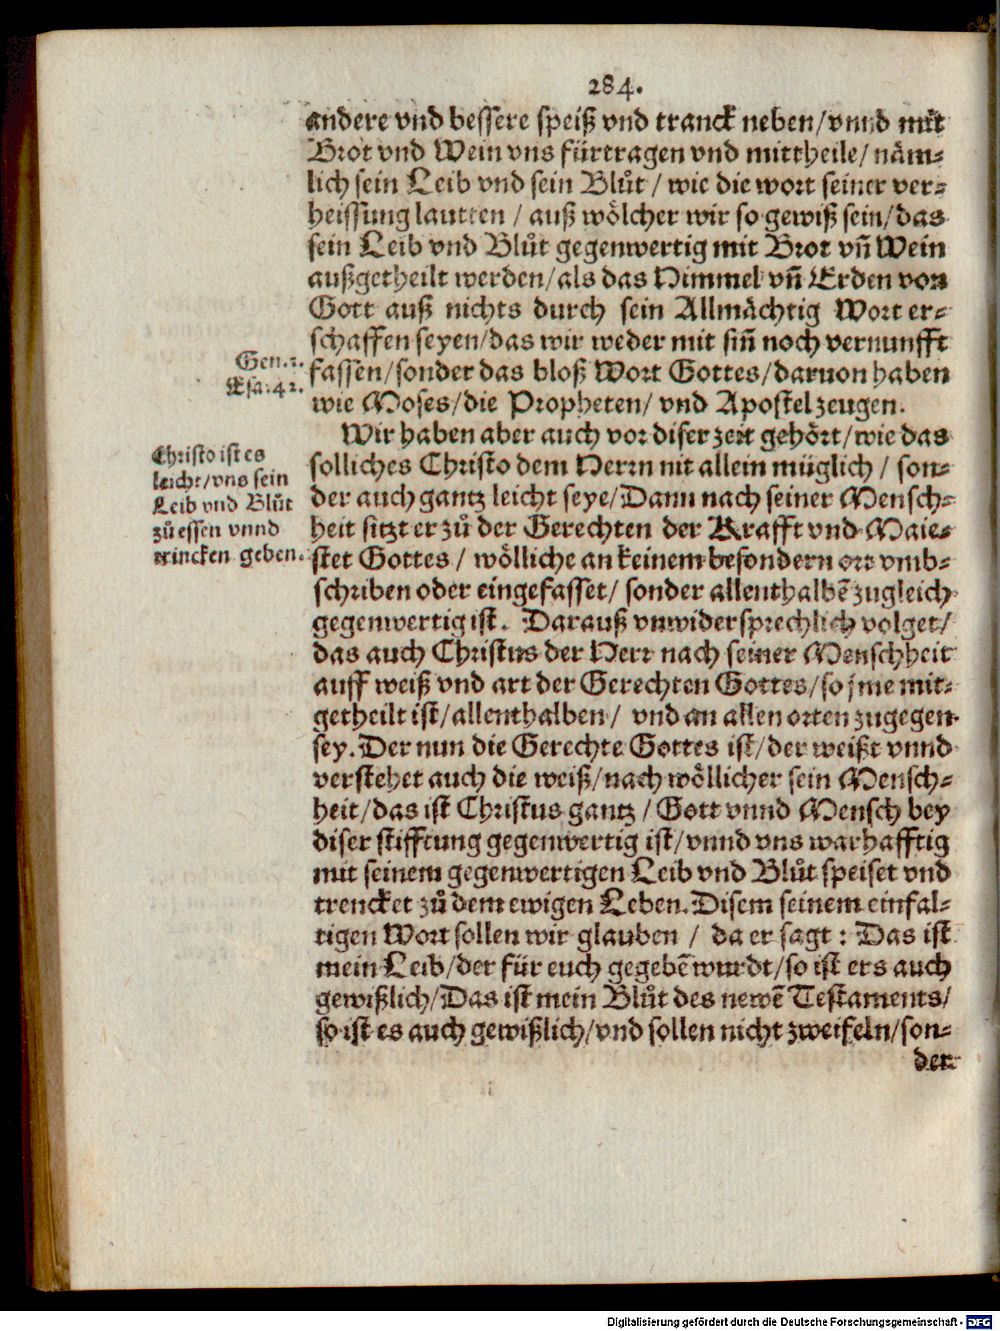 284.
andere vnd bessere speiß vnd tranck neben/vnnd mit
Brot vnd Wein vns fürtragen vnd mittheile/näm-
lich sein Leib vnd sein Blůt/wie die wort seiner ver-
heissung lautten/auß wölcher wir so gewiß sein/das
sein Leib vnd Blůt gegenwertig mit Brot vñ Wein
außgetheilt werden/als das Himmel vñ Erden von
Gott auß nichts durch sein Allmächtig Wort er-
schaffen seyen/das wir weder mit siñ noch vernunfft
Gen. 1.
fassen/sonder das bloß Wort Gottes/daruon haben
Esa. 42.
wie Moses/die Propheten/vnd Apostel zeugen.
Wir haben aber auch vor diser zeit gehört/wie das
Christo ist es
leicht/vns sein
Leib vnd Blůt
zů essen vnnd
trincken geben.
solliches Christo dem Herrn nit allein müglich/son-
der auch gantz leicht seye/Dann nach seiner Mensch-
heit sitzt er zů der Gerechten der Krafft vnd Maie-
stet Gottes/wölliche an keinem besondern ort vmb-
schriben oder eingefasset/sonder allenthalbẽ zugleich
gegenwertig ist. Darauß vnwidersprechlich volget/
das auch Christus der Herr nach seiner Menschheit
auff weiß vnd art der Gerechten Gottes/so jme mit-
getheilt ist/allenthalben/vnd an allen orten zugegen
sey. Der nun die Gerechte Gottes ist/der weißt vnnd
verstehet auch die weiß/nach wöllicher sein Mensch-
heit/das ist Christus gantz/Gott vnnd Mensch bey
diser stifftung gegenwertig ist/vnnd vns warhafftig
mit seinem gegenwertigen Leib vnd Blůt speiset vnd
trencket zů dem ewigen Leben. Disem seinem einfal-
tigen Wort sollen wir glauben/da er sagt: Das ist
mein Leib/der für euch gegebẽ wurdt/so ist ers auch
gewißlich/Das ist mein Blůt des newẽ Testaments/
so ist es auch gewißlich/vnd sollen nicht zweifeln/son-
der
Digitalisierung gefördert durch die Deutsche Forschungsgemeinschaft - DFG